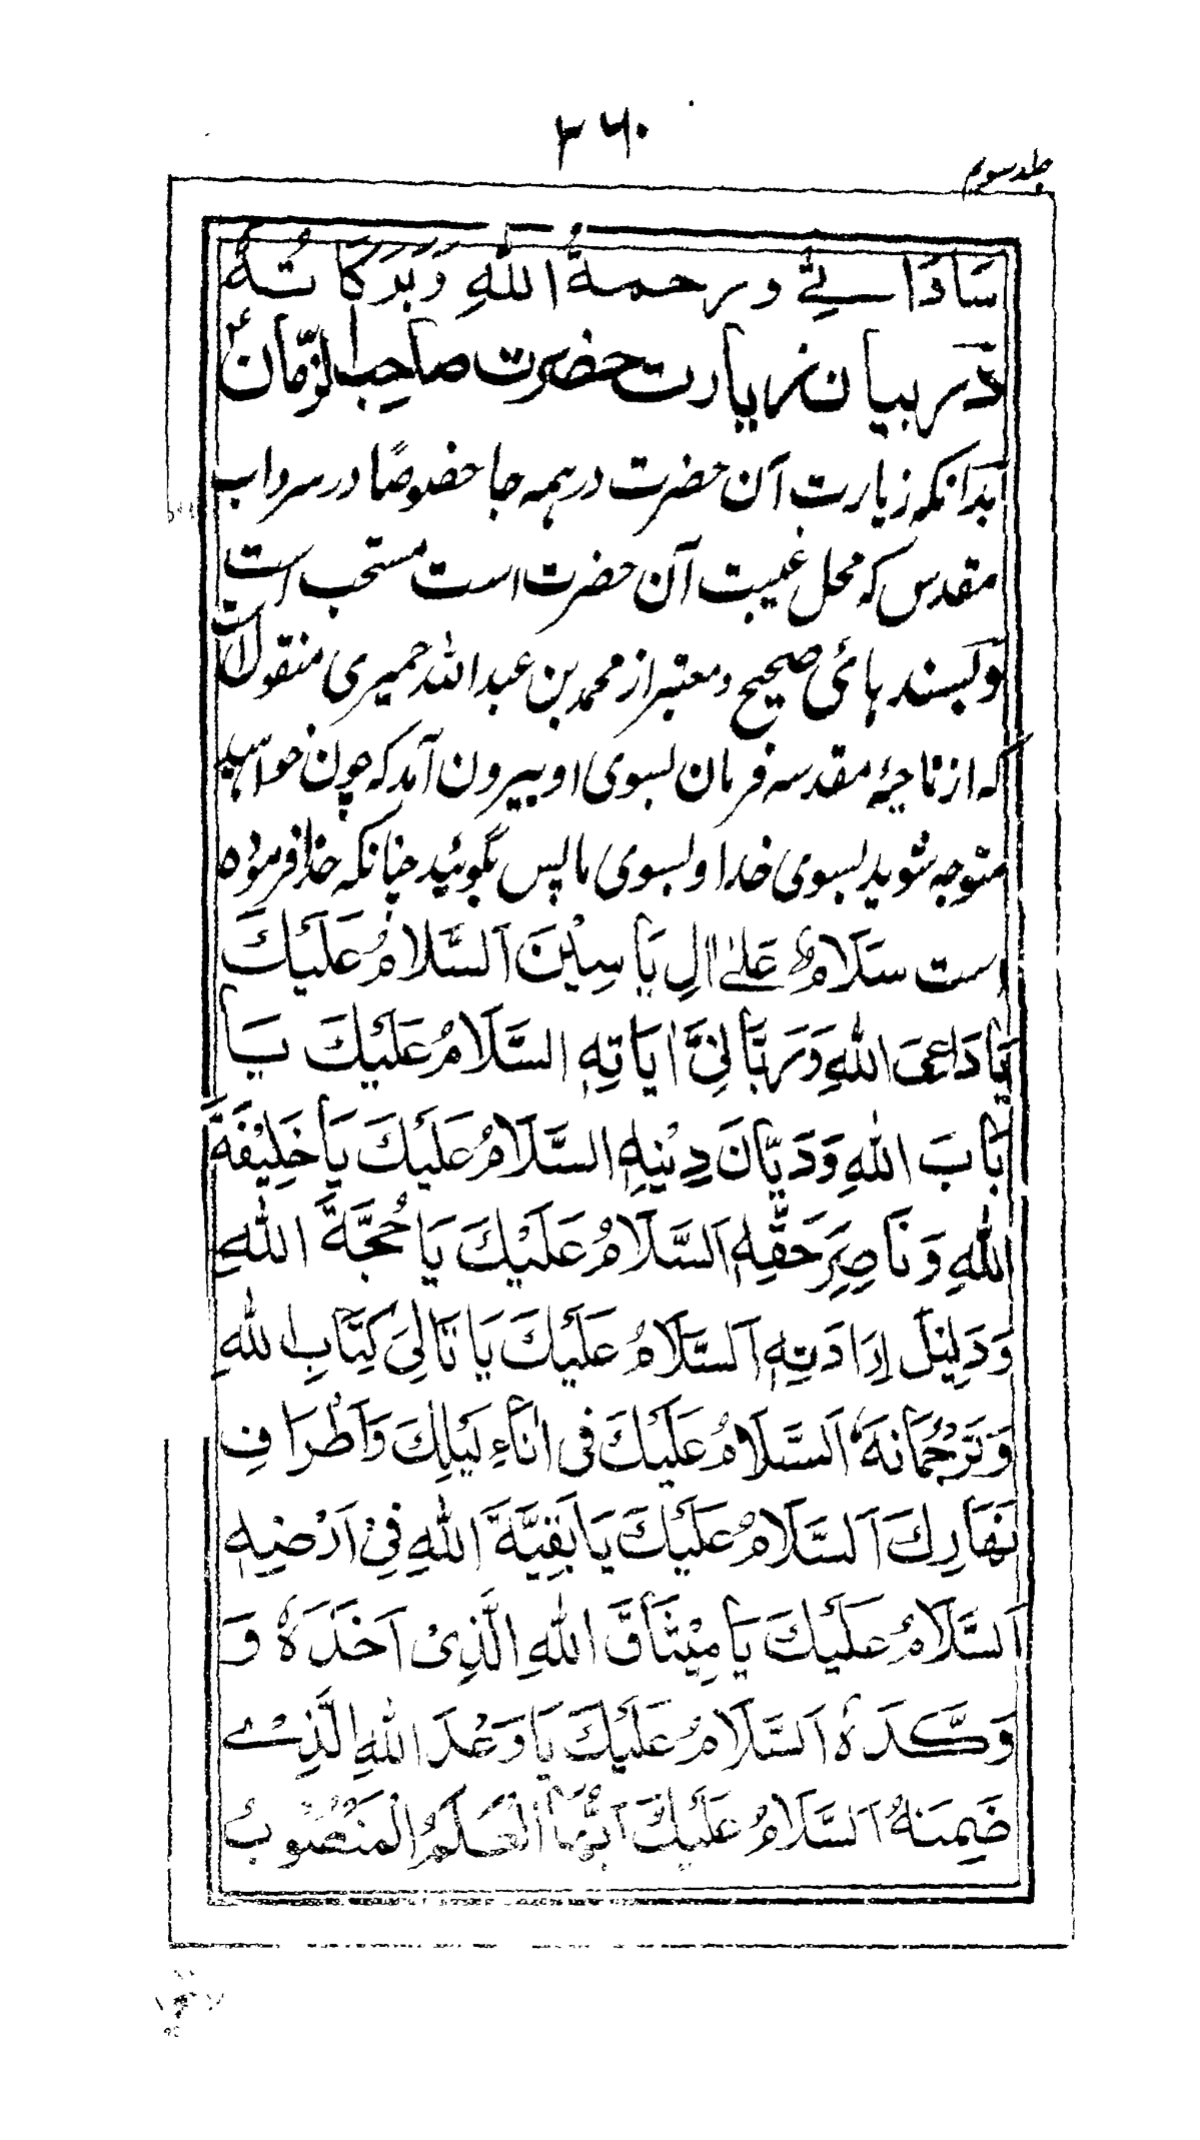 ۳۶۰
جلد سوم
سَادَاتِیْ و رحمةُ اللّٰهِ وَبَرَكَاتُهُ
دَر بیان زیارت حضرت صاحب الزّمان ع
بدانکه زیارت آن حضرت در همه جا خصوصًا در سرداب
مقدس که محل غیبت آن حضرت است مستحب است
و بسند هائی صحیح و معتبر از محمد بن عبد الله حمیری منقول است
که از ناحیۂ مقدسه فرمان بسوی او بیرون آمد که چون خواهید
متوجه شوید بسوی خدا و بسوی ما پس بگوئید چنانکه خدا فرموده
است سَلَامٌ عَلىٰ اٰلِ يَاسِيْنَ اَلسَّلَامُ عَلَيْكَ
يَا دَاعِيَ اللّٰهِ وَرَبَّانِيَّ اٰيَاتِهٖ السَّلَامُ عَلَيْكَ يَا
بَابَ اللّٰهِ وَدَيَّانَ دِيْنِهٖ السَّلَامُ عَلَيْكَ يَا خَلِيْفَةَ
اللّٰهِ وَنَاصِرَ حَقِّهٖ اَلسَّلَامُ عَلَيْكَ يَا حُجَّةَ اللّٰهِ
وَدَلِيْلَ اِرَادَتِهٖ اَلسَّلَامُ عَلَيْكَ يَا تَالِيَ كِتَابِ اللّٰهِ
وَتَرْجُمَانَهٗ اَلسَّلَامُ عَلَيْكَ فِي اٰنَاءِ لَيْلِكَ وَاَطْرَافِ
نَهَارِكَ اَلسَّلَامُ عَلَيْكَ يَا بَقِيَّةَ اللّٰهِ فِيْ اَرْضِهٖ
اَلسَّلَامُ عَلَيْكَ يَا مِيْثَاقَ اللّٰهِ الَّذِيْ اَخَذَهٗ وَ
وَكَّدَهٗ اَلسَّلَامُ عَلَيْكَ يَا وَعْدَ اللّٰهِ الَّذِيْ
ضَمِنَهٗ اَلسَّلَامُ عَلَيْكَ اَيُّهَا الْعَلَمُ الْمَنْصُوْبُ